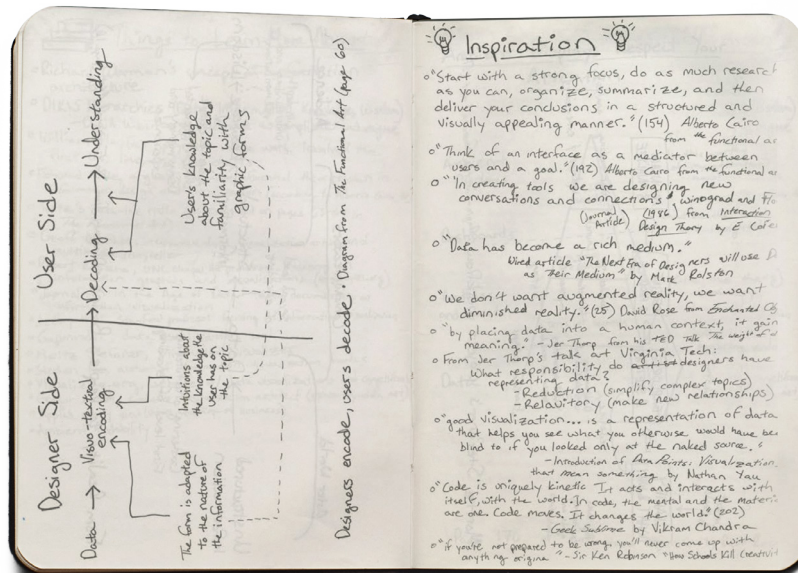 Designer Side
User Side
Data → Visuo-textual
encoding
→ Decoding → Understanding
The form is adapted
to the nature of
the information
Intuitions about
the knowledge the
user has on
the topic
User's knowledge
about the topic and
familiarity with
graphic forms
Designers encode, users decode • Diagram from The Functional Art (page 60)
Inspiration
"Start with a strong focus, do as much research
as you can, organize, summarize, and then
deliver your conclusions in a structured and
visually appealing manner." (154) Alberto Cairo
from the functional
"Think of an interface as a mediator between
users and a goal." (192) Alberto Cairo from the functional
"In creating tools we are designing new
conversations and connections" winograd and
(Journal Article) (1986) from Interaction
Design Theory by E.
"Data has become a rich medium."
Wired article "The Next Era of Designers will use
as Their Medium" by Mark Rolston
"We don't want augmented reality, we want
diminished reality." (25) David Rose from Enchanted
"by placing data into a human context, it
meaning." - Jer Thorp from his TED Talk The weight of
From Jer Thorp's talk at Virginia Tech:
What responsibility do designers have
representing data?
- Reduction (simplify, complex topics)
- (make new relationships)
"good visualization... is a representation of data
that helps you see what you otherwise would have be
blind to if you looked only at the naked source."
- Introduction of Data Points: Visualization
that mean something by Nathan Yau
"Code is uniquely kinetic It acts and interacts with
itself, with the world. In code, the mental and the
are one. Code moves. It changes the world." (202)
- Geek Sublime by Vikram Chandra
"if you're not prepared to be wrong, you'll never come up with
anything " - Sir Ken Robinson "How Schools Kill